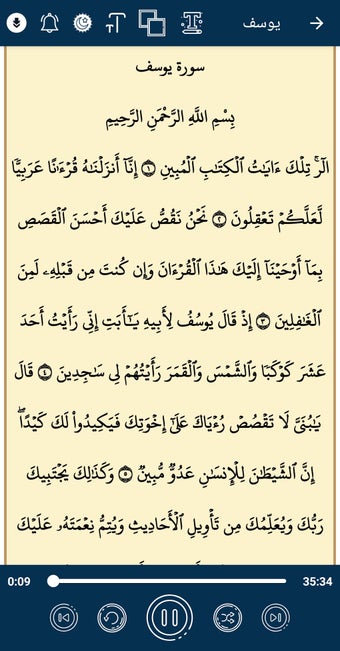 يوسف
سورة يوسف
بِسْمِ اللَّهِ الرَّحْمَنِ الرَّحِيمِ
الٓرۚ تِلْكَ ءَايَٰتُ ٱلْكِتَٰبِ ٱلْمُبِينِ ١ إِنَّآ أَنزَلْنَٰهُ قُرْءَٰنًا عَرَبِيًّا
لَّعَلَّكُمْ تَعْقِلُونَ ٢ نَحْنُ نَقُصُّ عَلَيْكَ أَحْسَنَ ٱلْقَصَصِ
بِمَآ أَوْحَيْنَآ إِلَيْكَ هَٰذَا ٱلْقُرْءَانَ وَإِن كُنتَ مِن قَبْلِهِۦ لَمِنَ
ٱلْغَٰفِلِينَ ٣ إِذْ قَالَ يُوسُفُ لِأَبِيهِ يَٰٓأَبَتِ إِنِّى رَأَيْتُ أَحَدَ
عَشَرَ كَوْكَبًا وَٱلشَّمْسَ وَٱلْقَمَرَ رَأَيْتُهُمْ لِى سَٰجِدِينَ ٤ قَالَ
يَٰبُنَىَّ لَا تَقْصُصْ رُءْيَاكَ عَلَىٰٓ إِخْوَتِكَ فَيَكِيدُوا۟ لَكَ كَيْدًاۖ
إِنَّ ٱلشَّيْطَٰنَ لِلْإِنسَٰنِ عَدُوٌّ مُّبِينٌ ٥ وَكَذَٰلِكَ يَجْتَبِيكَ
رَبُّكَ وَيُعَلِّمُكَ مِن تَأْوِيلِ ٱلْأَحَادِيثِ وَيُتِمُّ نِعْمَتَهُۥ عَلَيْكَ
0:09 35:34